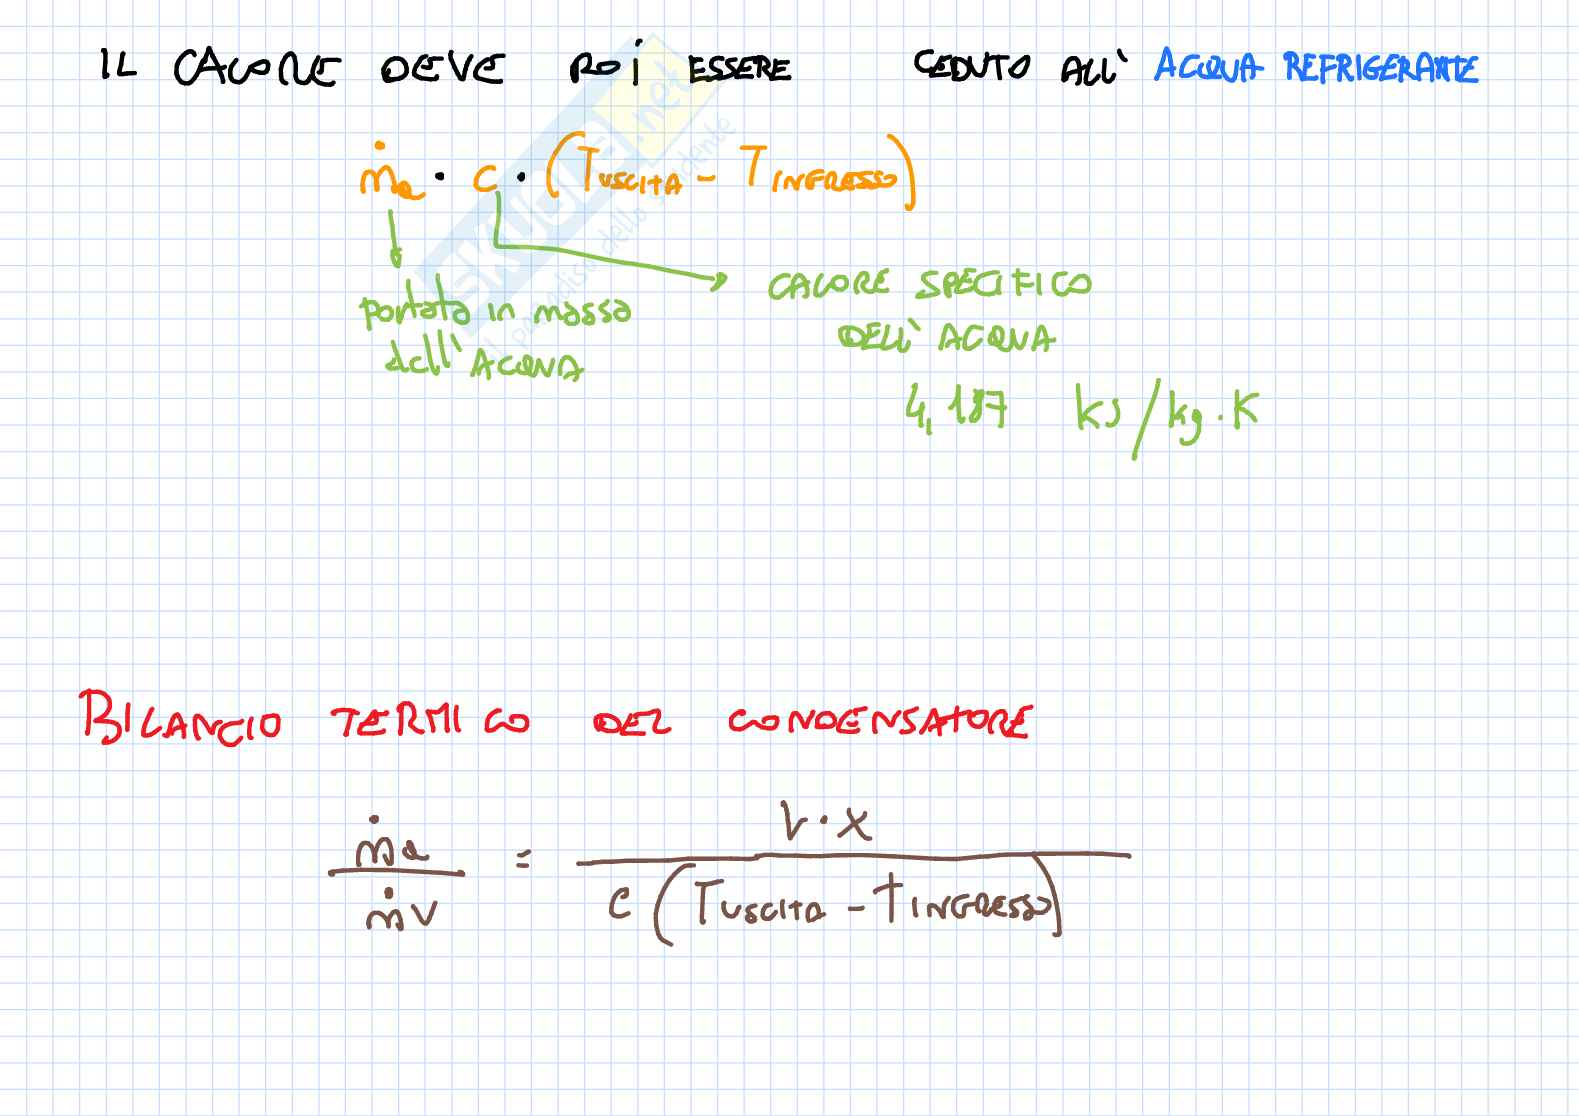 IL CALORE DEVE POI ESSERE CEDUTO ALL' ACQUA REFRIGERANTE
ṁa · c · (TUSCITA - TINGRESSO)
portata in massa
dell'ACQUA
CALORE SPECIFICO
DELL'ACQUA
4,187 kJ/kg·K
BILANCIO TERMICO DEL CONDENSATORE
ṁa / ṁv = V·X / C (TUSCITA - TINGRESSO)
SKUOLA.net
il paradiso dello studente